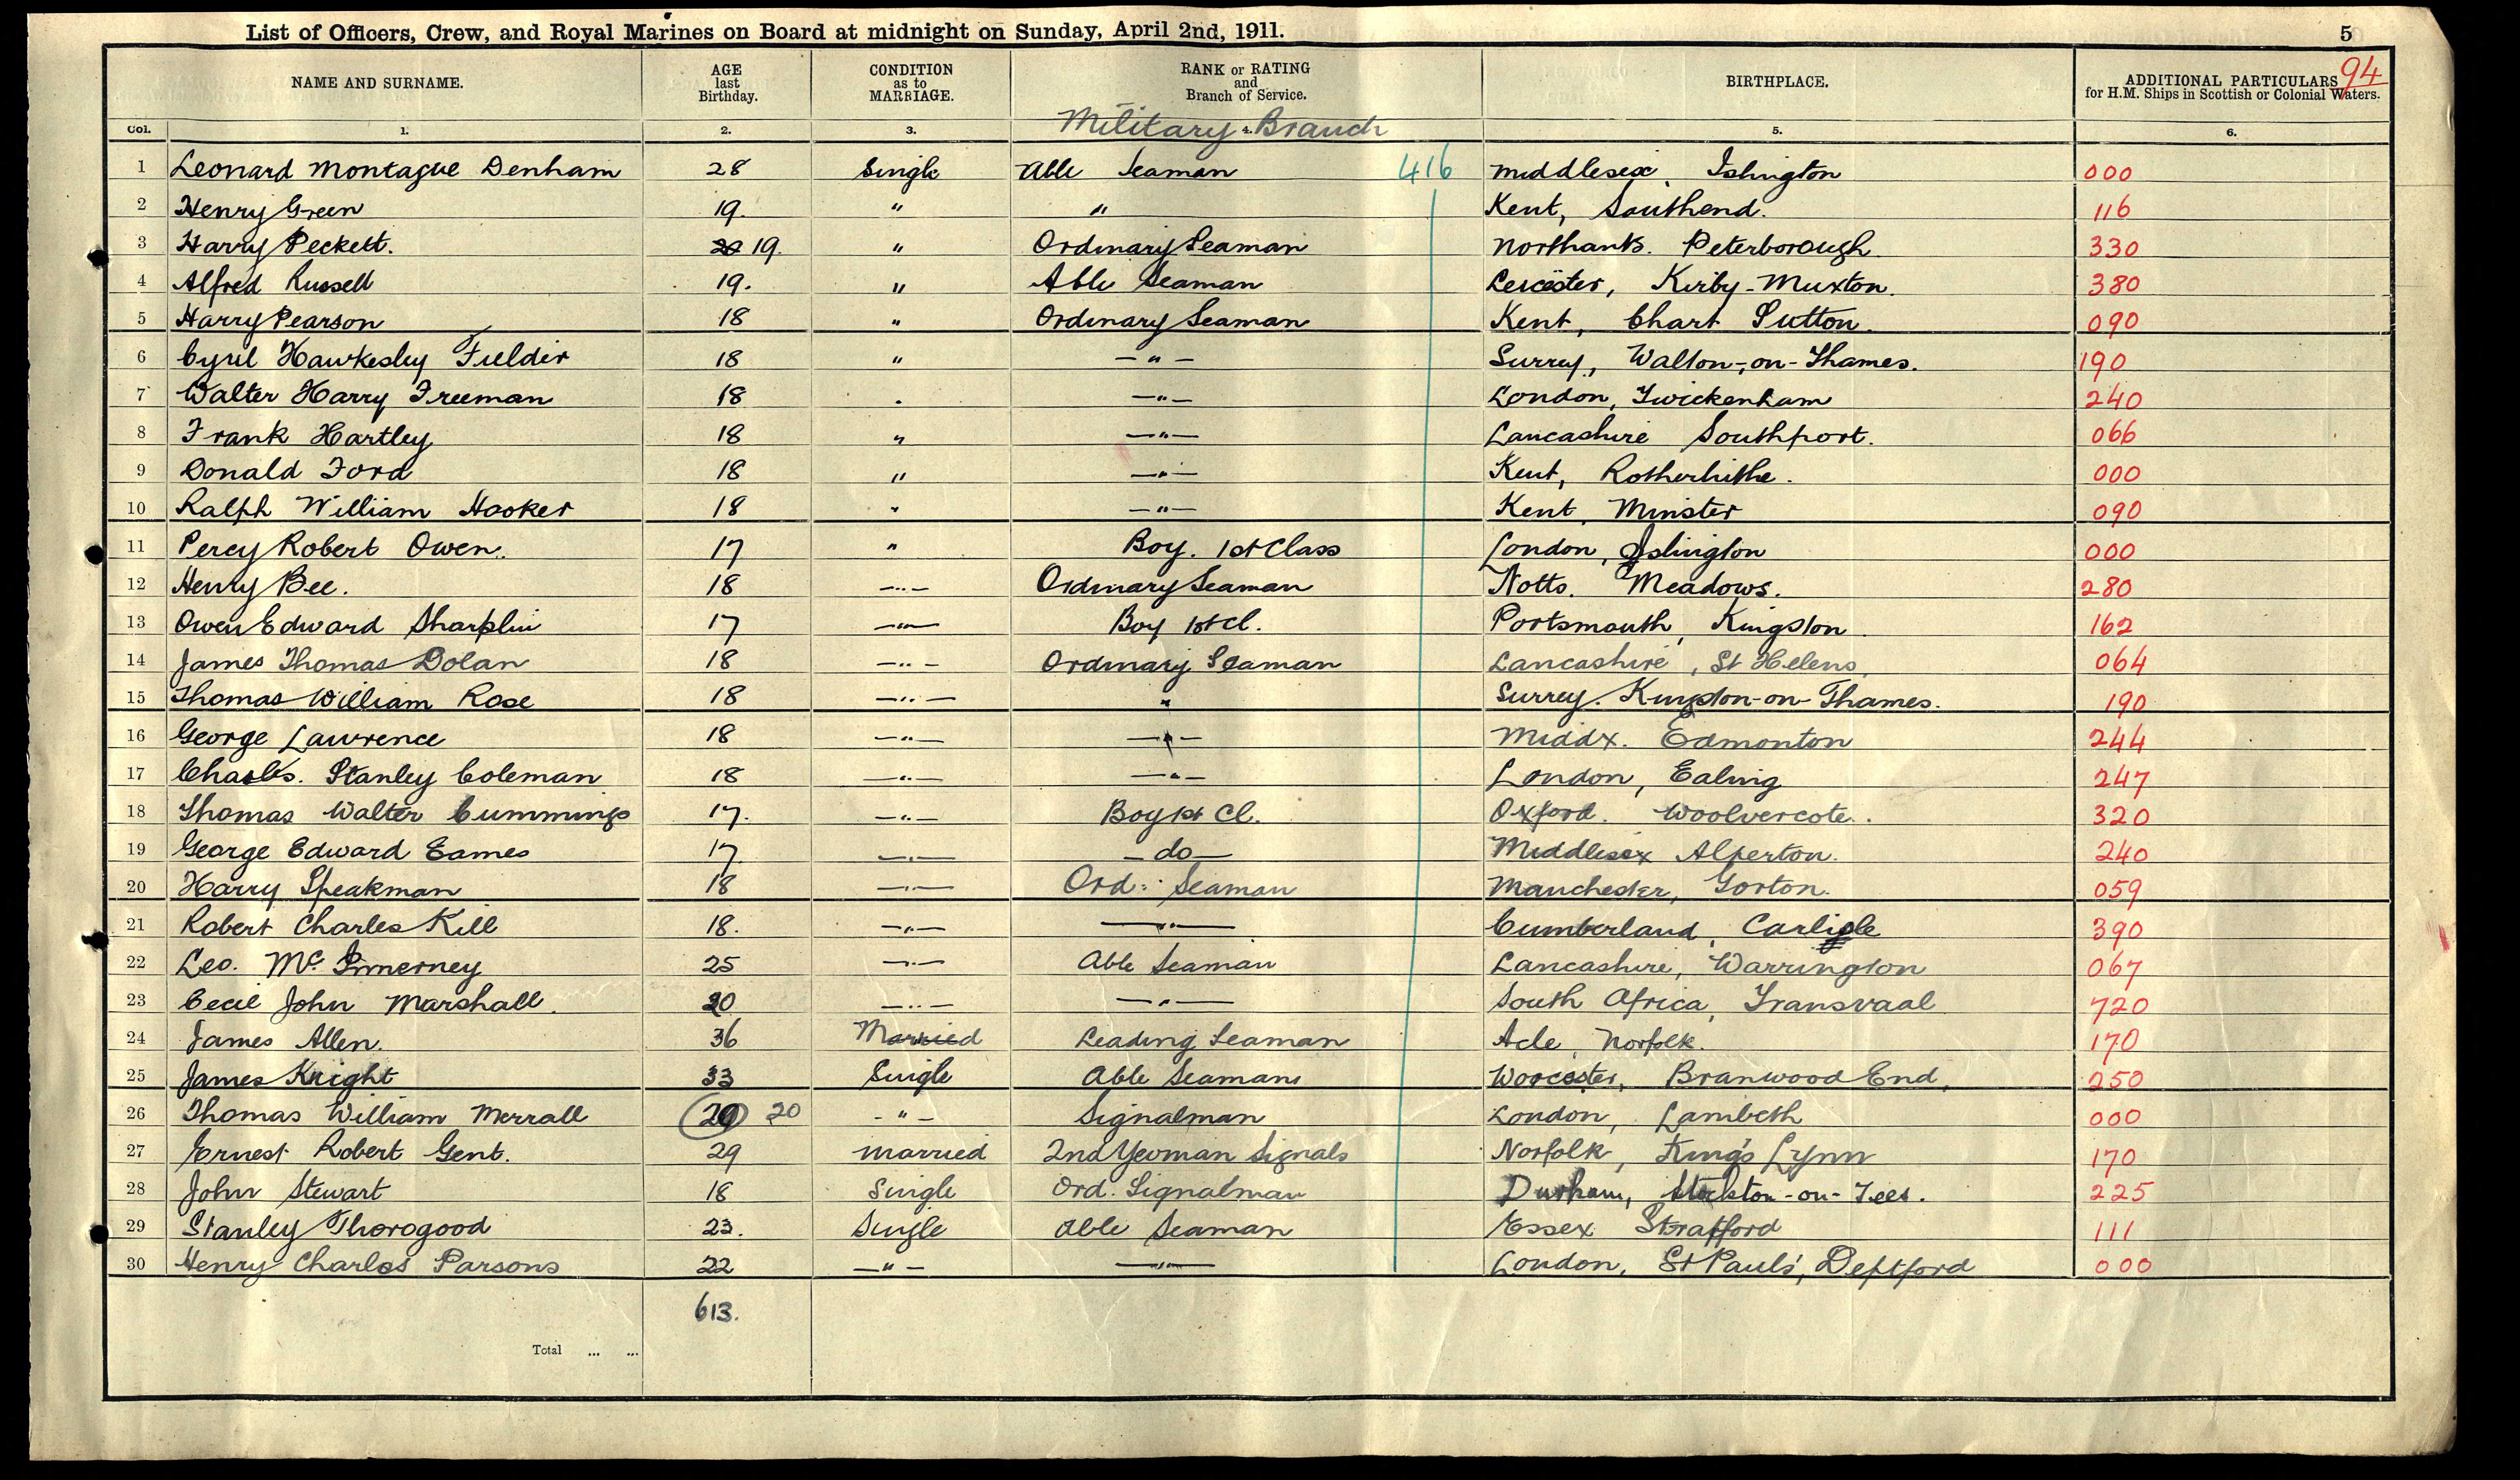 List of Officers, Crew, and Royal Marines on Board at midnight on Sunday, April 2nd, 1911. 5
94
NAME AND SURNAME. AGE last Birthday. CONDITION as to MARRIAGE. RANK or RATING and Branch of Service. BIRTHPLACE. ADDITIONAL PARTICULARS for H.M. Ships in Scottish or Colonial Waters.
Military Branch
Col. 1. 2. 3. 4. 5. 6.
1 Leonard Montague Denham 28 Single Able Seaman 416 Middlesex, Islington 000
2 Henry Green 19. " " Kent, Southend. 116
3 Harry Peckett. 20 19. " Ordinary Seaman Northants. Peterborough. 330
4 Alfred Russell 19. " Able Seaman Leicester, Kirby-Muxton. 380
5 Harry Pearson 18 " Ordinary Seaman Kent, Chart Sutton. 090
6 Cyril Hawkesley Fielder 18 " - " - Surrey, Walton-on-Thames. 190
7 Walter Harry Freeman 18 " - " - London, Twickenham 240
8 Frank Hartley 18 " - " - Lancashire Southport. 066
9 Donald Ford 18 " - " - Kent, Rotherhithe. 000
10 Ralph William Hooker 18 " - " - Kent, Minster 090
11 Percy Robert Owen. 17 " Boy. 1st Class London, Islington 000
12 Henry Bee. 18 - " - Ordinary Seaman Notts. Meadows. 280
13 Owen Edward Sharplin 17 - " - Boy 1st Cl. Portsmouth, Kingston. 162
14 James Thomas Dolan 18 - " - Ordinary Seaman Lancashire, St Helens 064
15 Thomas William Rose 18 - " - " Surrey. Kingston-on-Thames. 190
16 George Lawrence 18 - " - - " - Middx. Edmonton 244
17 Charles. Stanley Coleman 18 - " - - " - London, Ealing 247
18 Thomas Walter Cummings 17. - " - Boy 1st Cl. Oxford. Woolvercote. 320
19 George Edward Eames 17 - " - - do - Middlesex Alperton. 240
20 Harry Speakman 18 - " - Ord: Seaman Manchester, Gorton. 059
21 Robert Charles Kill 18. - " - - " - Cumberland, Carlisle 390
22 Leo. Mc Innerney 25 - " - Able Seaman Lancashire, Warrington 067
23 Cecil John Marshall. 20 - " - - " - South Africa, Transvaal 720
24 James Allen. 36 Married Leading Seaman Acle, Norfolk. 170
25 James Knight 33 Single Able Seaman Worcester, Branwood End, 250
26 Thomas William Merrall 20 20 - " - Signalman London, Lambeth 000
27 Ernest Robert Gent. 29 Married 2nd Yeoman Signals Norfolk, King's Lynn 170
28 John Stewart 18 Single Ord. Signalman Durham, Stockton-on-Tees. 225
29 Stanley Thorogood 23. Single Able Seaman Essex Stratford 111
30 Henry Charles Parsons 22 - " - - " - London, St Pauls', Deptford 000
613.
Total ... ...